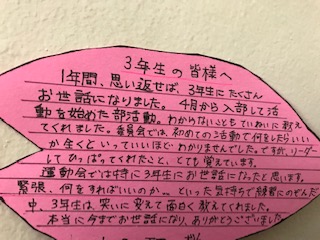 3年生の皆様へ
1年間、思い返せば、3年生にたくさん
お世話になりました。4月から入部して活
動を始めた部活動。わからないこともていねいに教え
てくれました。委員会では、初めての活動で何をしたらいい
か全くといっていいほどわかりませんでした。ですが、リーダー
してひっぱってくれたこと、とても覚えています。
運動会では特に3年生にお世話になったと思います。
緊張、何をすればいいのか…といった気持ちで練習にのぞんだ
中、3年生は、笑いに変えて面白く教えてくれました。
本当に今までお世話になり、ありがとうございました